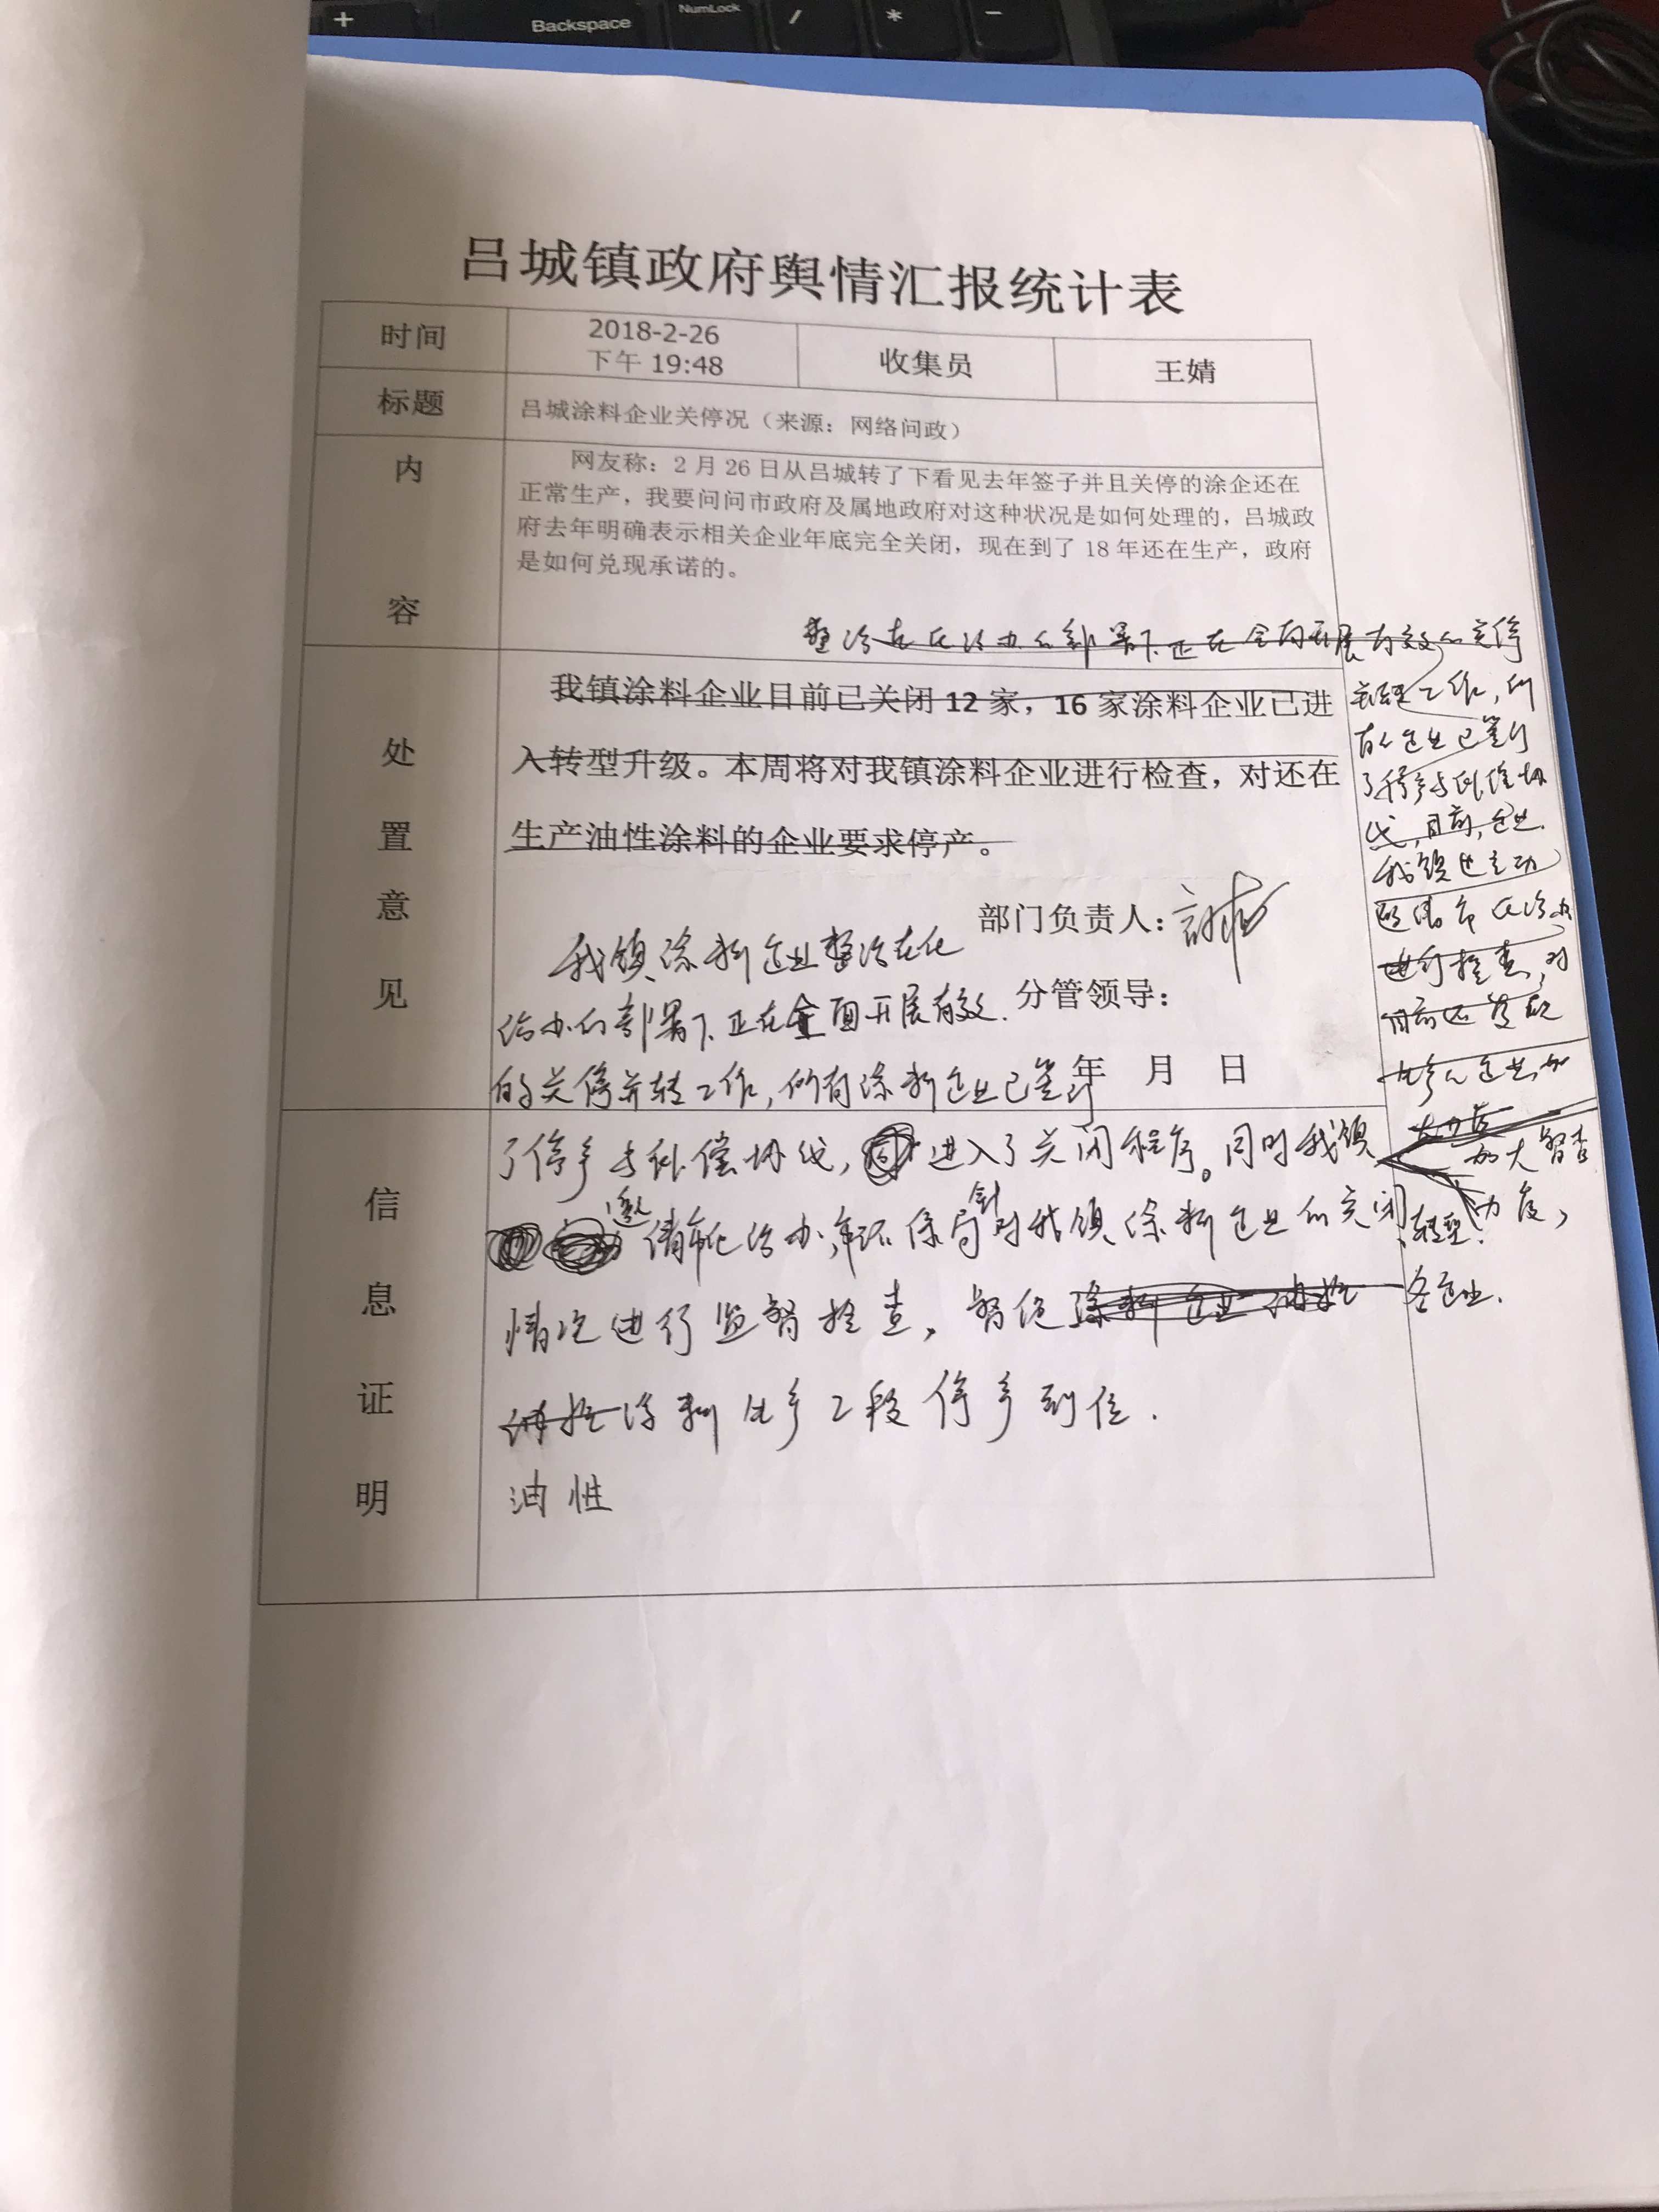 +
Backspace
NumLock
/
*
-
吕城镇政府舆情汇报统计表
时间
2018-2-26
下午 19:48
收集员
王婧
标题
吕城涂料企业关停况（来源：网络问政）
内
容
网友称：2 月 26 日从吕城转了下看见去年签子并且关停的涂企还在
正常生产，我要问问市政府及属地政府对这种状况是如何处理的，吕城政
府去年明确表示相关企业年底完全关闭，现在到了 18 年还在生产，政府
是如何兑现承诺的。
整治在化治办的部署下正在全面开展有效的关停
并转工作，所
有的企业已签订
了停产与补偿协
议，目前，企业
我镇也主动
邀请市化治办
进行检查，对
目前还
生产的企业，加
加大督查
力度，
处
置
意
见
我镇涂料企业目前已关闭 12 家，16 家涂料企业已进
入转型升级。本周将对我镇涂料企业进行检查，对还在
生产油性涂料的企业要求停产。
部门负责人：
分管领导：
年 月 日
我镇涂料企业整治在化
治办的部署下正在全面开展有效
的关停并转工作，所有涂料企业已签订
信
息
证
明
了停产与补偿协议，进入了关闭程序。同时我镇
邀请市化治办，环保局针对我镇涂料企业的关闭、转型
情况进行监督检查，督促各企业
涂料生产工段停产到位.
油性